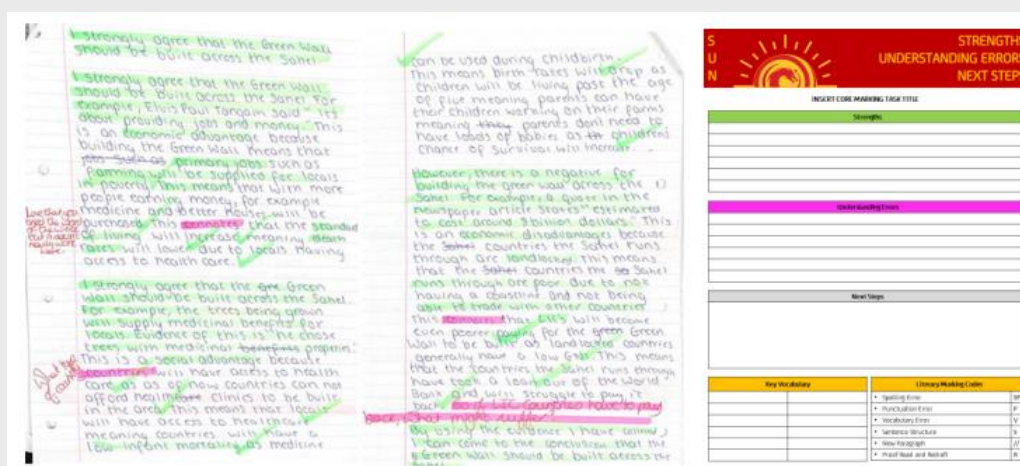 I strongly agree that the Green Wall
should be built across the Sahel.
I strongly agree that the Green Wall
should be built across the Sahel For
example, Elvis Paul Tangam said " it's
about providing jobs and money. This
is an economic advantage because
building the Green Wall means that
primary jobs such as
farming will be supplied for locals
in poverty. This means that with more
people earning money, for example
medicine and better houses will be
purchased This connotes that the standard
of living will increase meaning death
rates will lower due to locals having
access to health care.
Love that you
used the word
of the week
but it doesn't
really work
here.
I strongly agree that the Green
Wall should be built across the Sahel.
For example, the trees being grown
will supply medicinal benefits for
locals. Evidence of this is "he chose
trees with medicinal properties".
This is a social advantage because
countries will have access to health
care as as of now countries can not
afford health clinics to be built
in the area. This means that locals
will have access to healthcare
meaning countries will have a
low infant mortality as medicine
What type
of country
can be used during childbirth
This means birth rates will drop as
children will be living past the age
of five meaning parents can have
their children working on their farms
meaning parents don't need to
have loads of babies as children's
chance of survival will increase.
However, there is a negative for
building the green wall across the
Sahel. For example, a quote in the
newspaper article states "estimated
to cost around 8 billion dollars." This
is an economic disadvantage because
the countries the Sahel runs
through are landlocked. This means
that the countries the Sahel
runs through are poor due to not
having a coastline and not being
able to trade with other countries
This that LICs will become
even poorer paying for the Green
Wall to be built as landlocked countries
generally have a low GNI. This means
that the countries the Sahel runs through
have took a loan out of the World
Bank and will struggle to pay it
back so if LIC countries have to pay
back, what might suffer?
By using the evidence I have
I can come to the conclusion that the
Green Wall should be built across the
S
U
N
STRENGTHS
UNDERSTANDING ERRORS
NEXT STEPS
INSERT CORE MARKING TASK TITLE
Strengths
Understanding Errors
Next Steps
Key Vocabulary
Literacy Marking Codes
• Spelling Error SP
• Punctuation Error P
• Vocabulary Error V
• Sentence Structure S
• New Paragraph //
• Proof Read and Redraft R